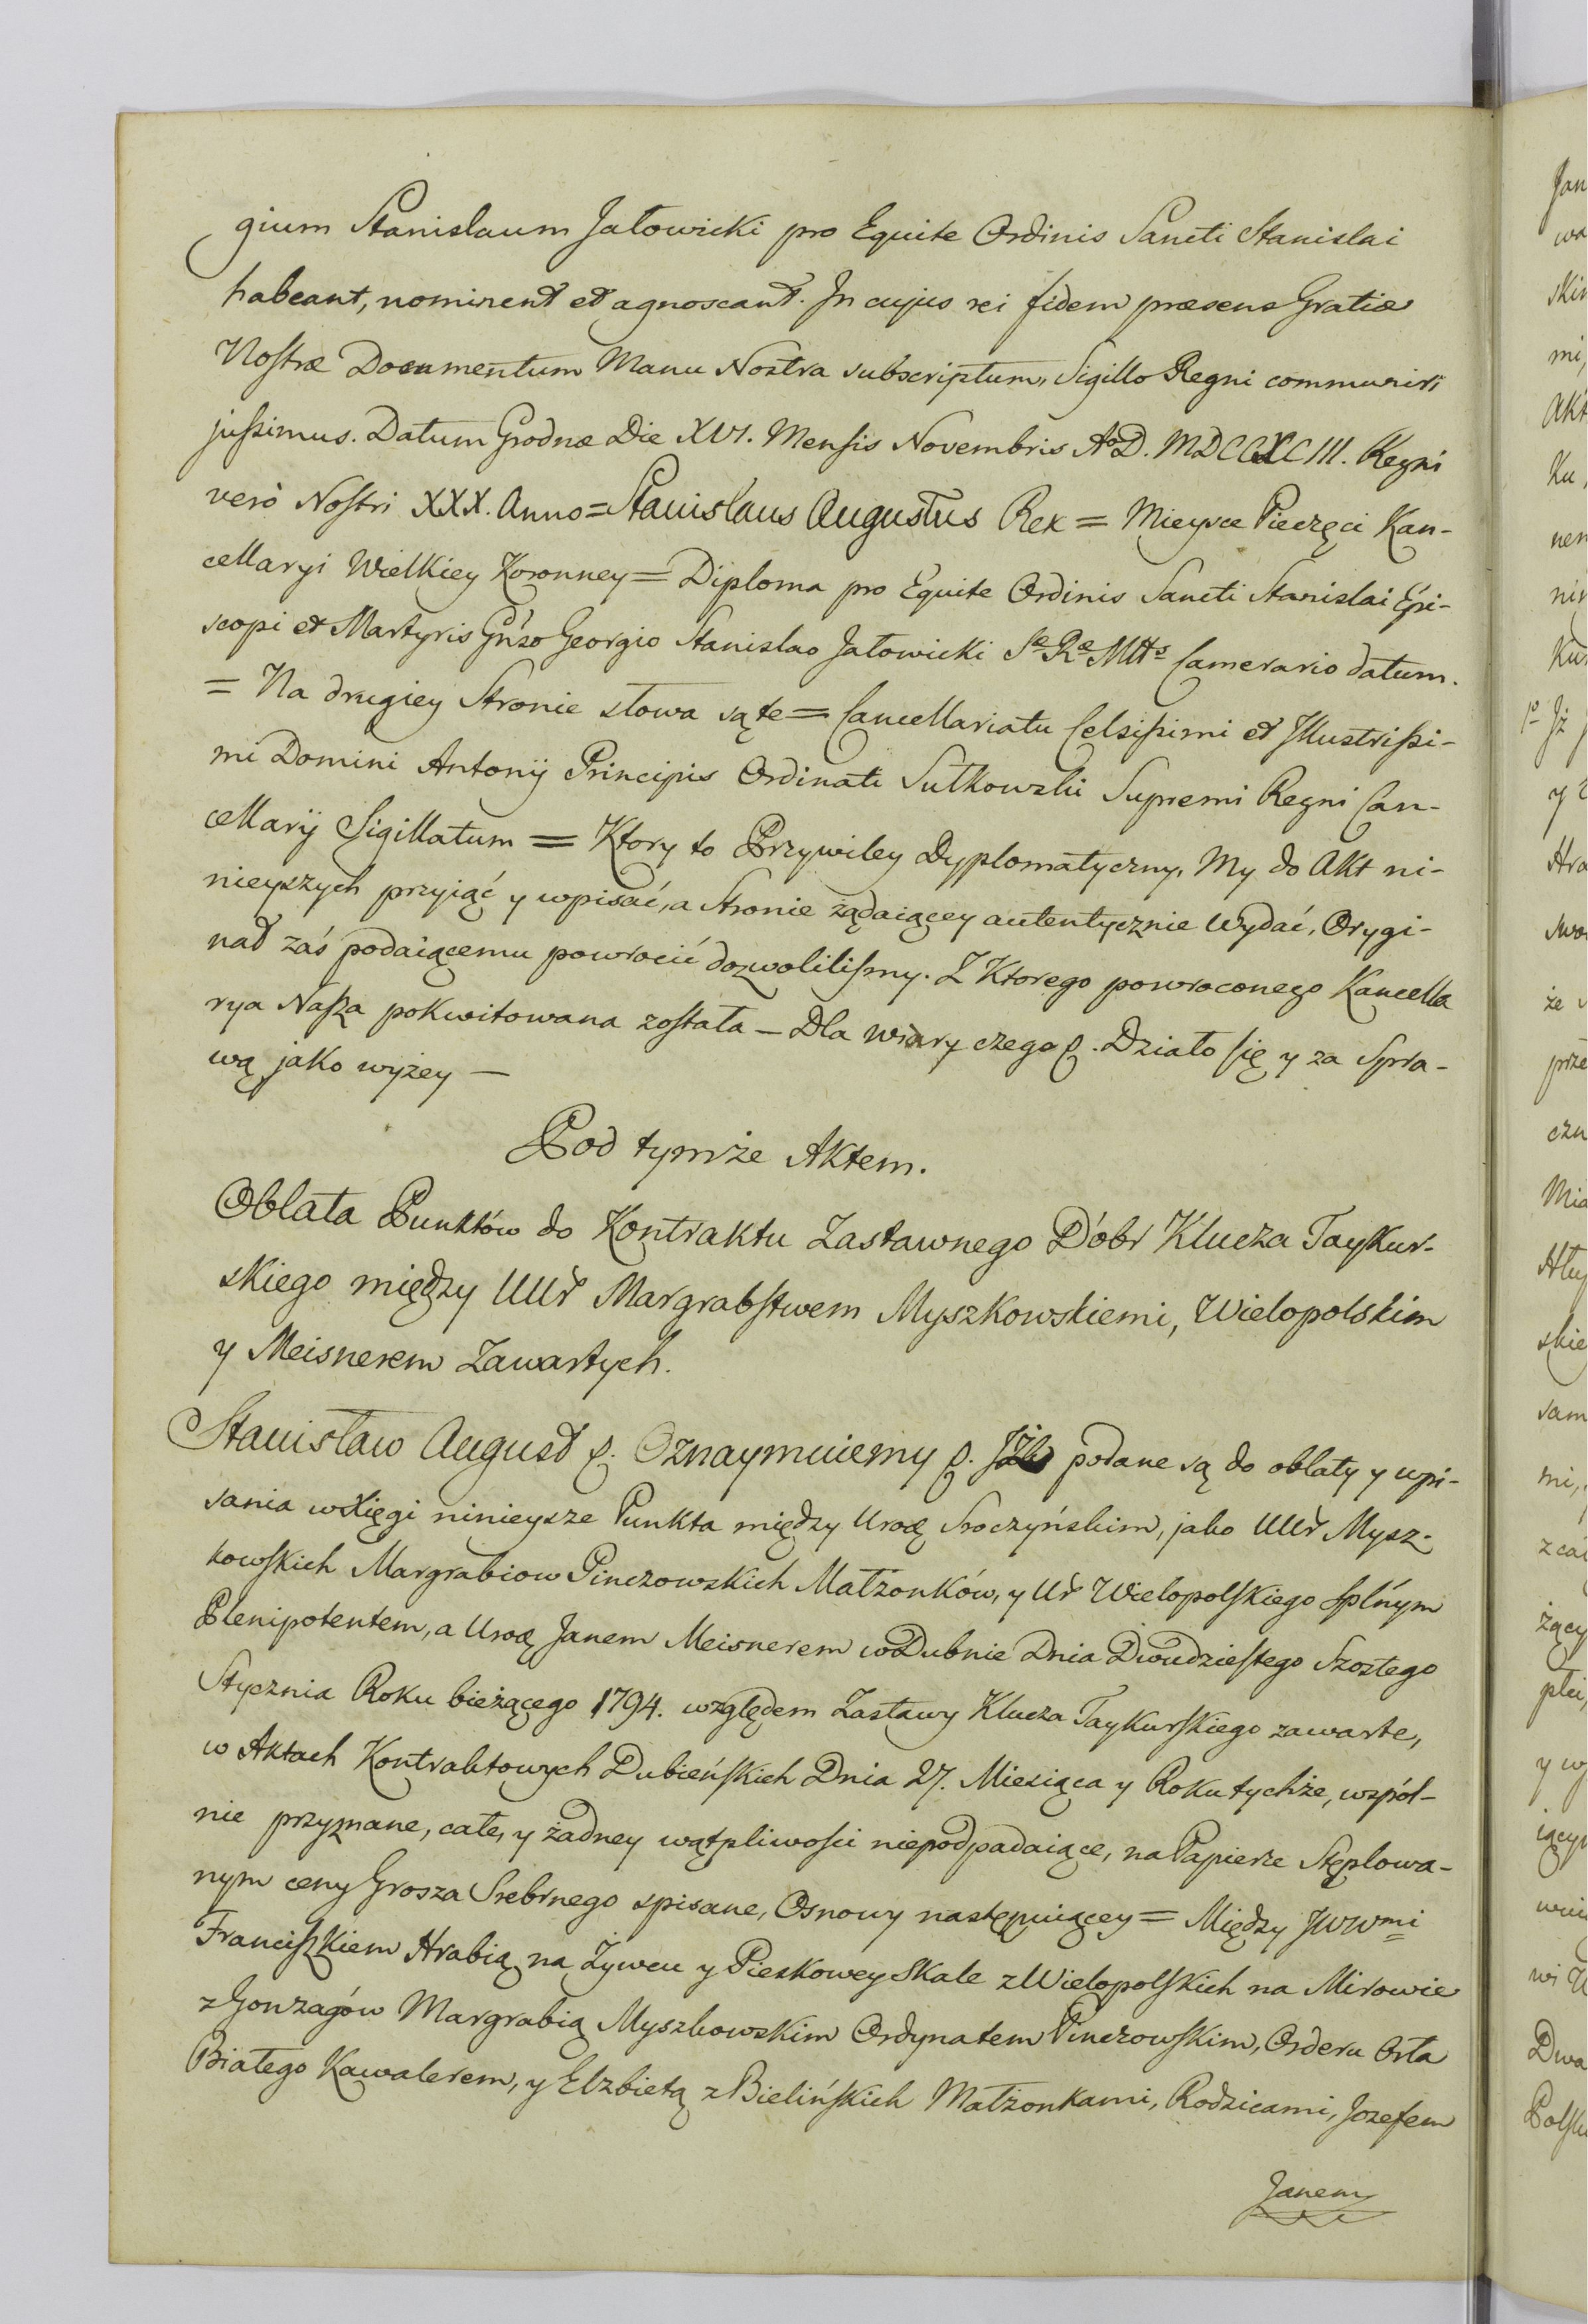 gium Stanislaum Jałowicki pro Equite Ordinis Sancti Stanislai
habeant, nominent et agnoscant. In cujus rei fidem præsens Gratiæ
Nostræ Documentum Manu Nostra subscriptum, Sigillo Regni communiri
jussimus. Datum Grodnæ Die XVI. Mensis Novembris Ao D. MDCCXCIII. Regni
verò Nostri XXX. Anno = Stanislaus Augustus Rex = Mieysce Pieczęci Kan-
cellaryi Wielkiey Koronney = Diploma pro Equite Ordinis Sancti Stanislai Epi-
scopi et Martyris Gnso Georgio Stanislao Jałowicki Sæ Ræ Mttis Camerario datum.
= Na drugiey Stronie słowa są te = Cancellariatu Celsissimi et Illustrissi-
mi Domini Antonij Principis Ordinati Sułkowski Supremi Regni Can-
cellarij Sigillatum = Ktory to Przywiley Dyplomatyczny, My do Akt ni-
nieyszych przyiąć y wpisać, a Stronie żądaiącey autentycznie wydać, Orygi-
nał zaś podaiącemu powrocić dozwolilismy. Z Ktorego powroconego Kancella
rya Nasza pokwitowana została — Dla wiary czego &. Działo się y za Spra-
wą jako wyżey —
Pod tymże Aktem.
Oblata Punktów do Kontraktu Zastawnego Dóbr Klucza Taykur-
skiego między UUr Margrabstwem Myszkowskiemi, Wielopolskim
y Meisnerem Zawartych.
Stanisław August &. Oznaymuiemy &. Iż podane są do oblaty y wpi-
sania w Xięgi ninieysze Punkta między Urod Sroczyńskim, jako UUr Mysz-
kowskich Margrabiow Pinczowskich Małżonków, y Ur Wielopolskiego Splnym
Plenipotentem, a Urod Janem Meisnerem w Dubnie Dnia Dwudziestego Szostego
Stycznia Roku bieżącego 1794. względem Zastawy Klucza Taykurskiego zawarte,
w Aktach Kontraktowych Dubieńskich Dnia 27. Miesiąca y Roku tychże, wspól-
nie przyznane, całe, y żadney wątpliwości niepodpadaiące, na Papierze Stęplowa-
nym ceny Grosza Srebrnego spisane, Osnowy następuiącey = Między JWWmi
Franciszkiem Hrabią na Żywcu y Pieskowey Skale z Wielopolskich na Mirowie
z Gonzagów Margrabią Myszkowskim Ordynatem Pinczowskim, Orderu Orła
Białego Kawalerem, y Elzbietą z Bielińskich Małżonkami, Rodzicami, Jozefem
Janem